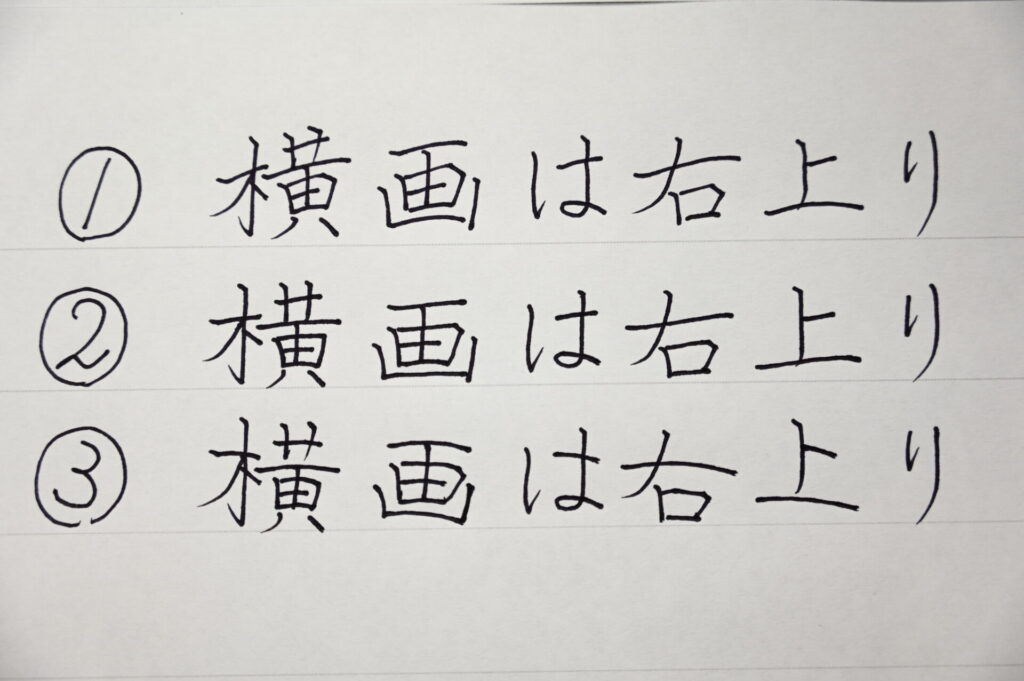 ① 横画は右上り
② 横画は右上り
③ 横画は右上り